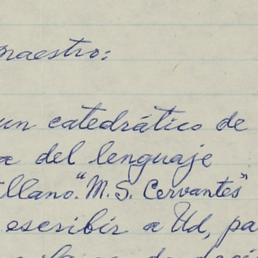 maestro:
un catedrático de
a del lenguaje
tillano. "M. S. Cervantes"
escribir a Ud, pa